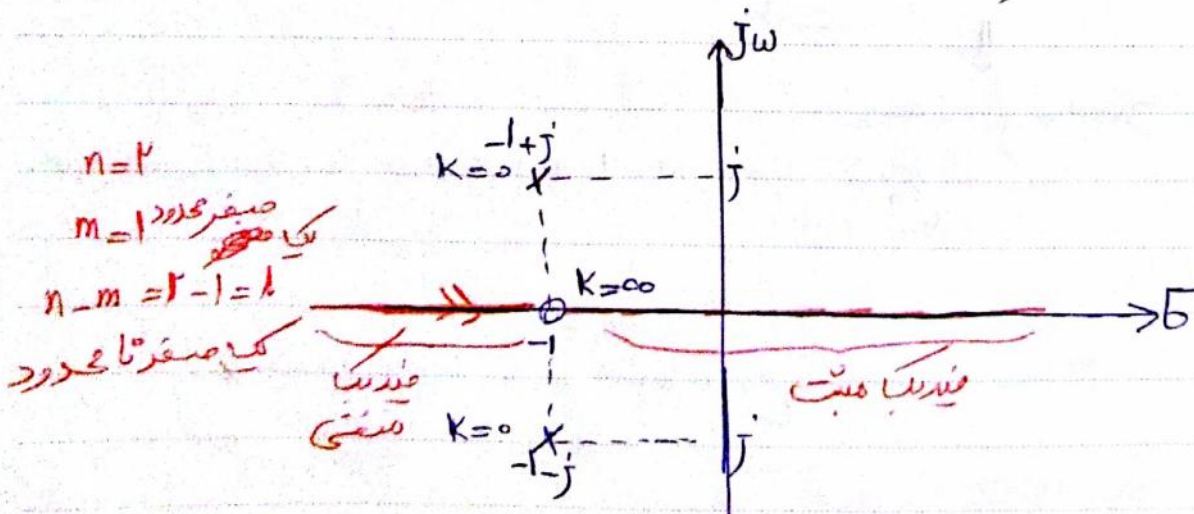 jω
n=۲
m=۱ صفر محدود
یک
n-m=۲-۱=۱
یک صفر نا محدود
-1+j
K=0
j
K=∞
-1
σ
فیدبک
منفی
فیدبک مثبت
K=0
-1-j
j